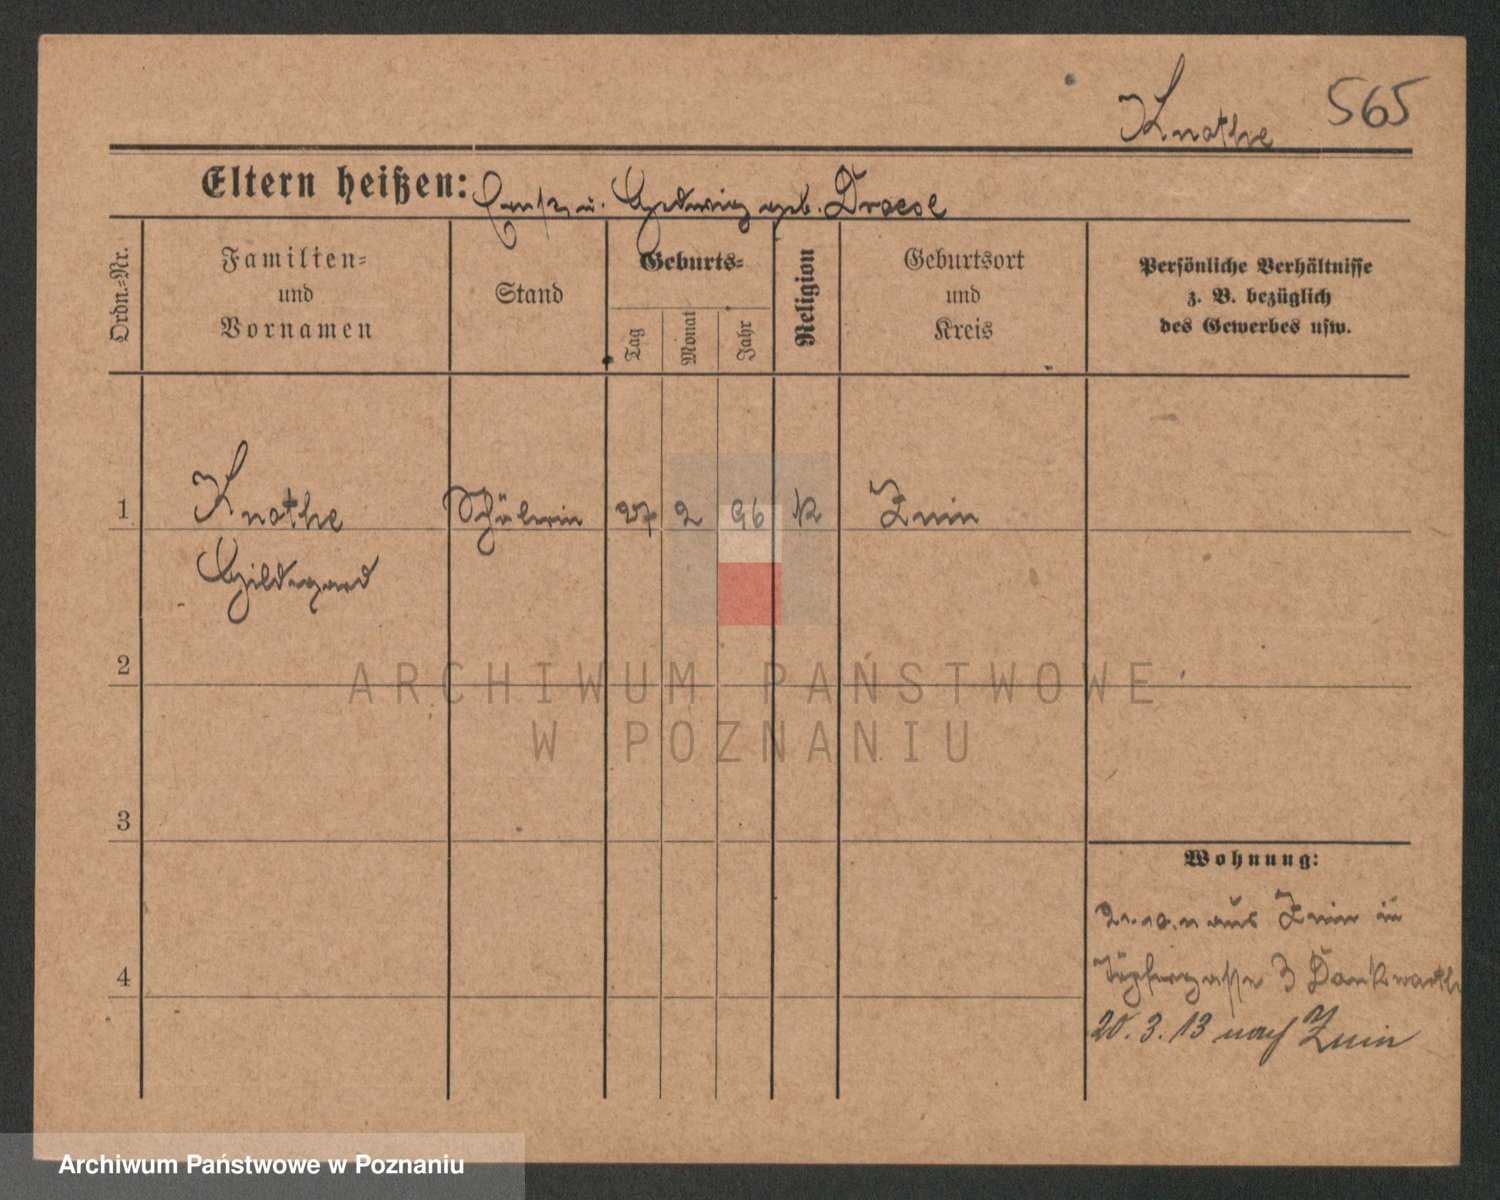 Knothe 565
Eltern heißen: u. Hedwig geb.
Ordn.-Nr.
Familien-
und
Vornamen
Stand
Geburts-
Tag
Monat
Jahr
Religion
Geburtsort
und
Kreis
Persönliche Verhältnisse
z. B. bezüglich
des Gewerbes usw.
1 Knothe Schülerin 27 2 96 k Znin
Hildegard
2
3
4
Wohnung:
aus Znin in
Töpfergasse 3 Dankwarth
20. 3. 13 nach Znin
ARCHIWUM PAŃSTWOWE
W POZNANIU
Archiwum Państwowe w Poznaniu